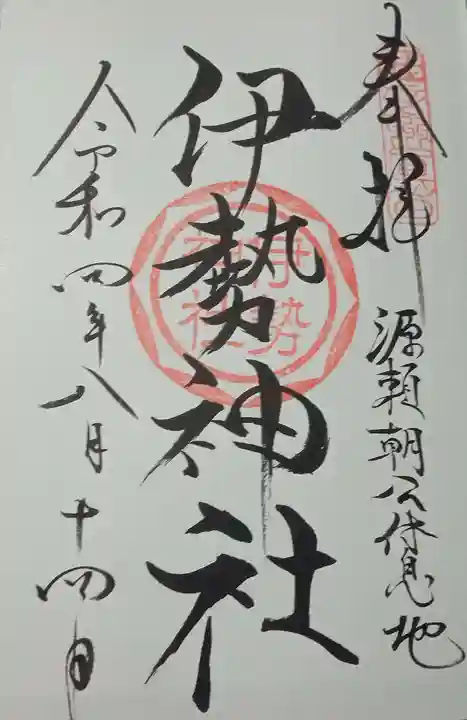 奉拝
源頼朝公休息地
伊勢神社
伊勢
神社
令和四年八月十四日